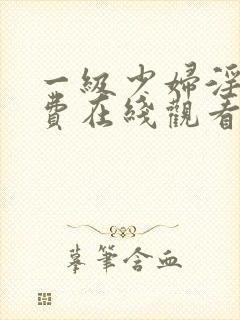 一級少婦淫
費在綫觀看
摹筆含血